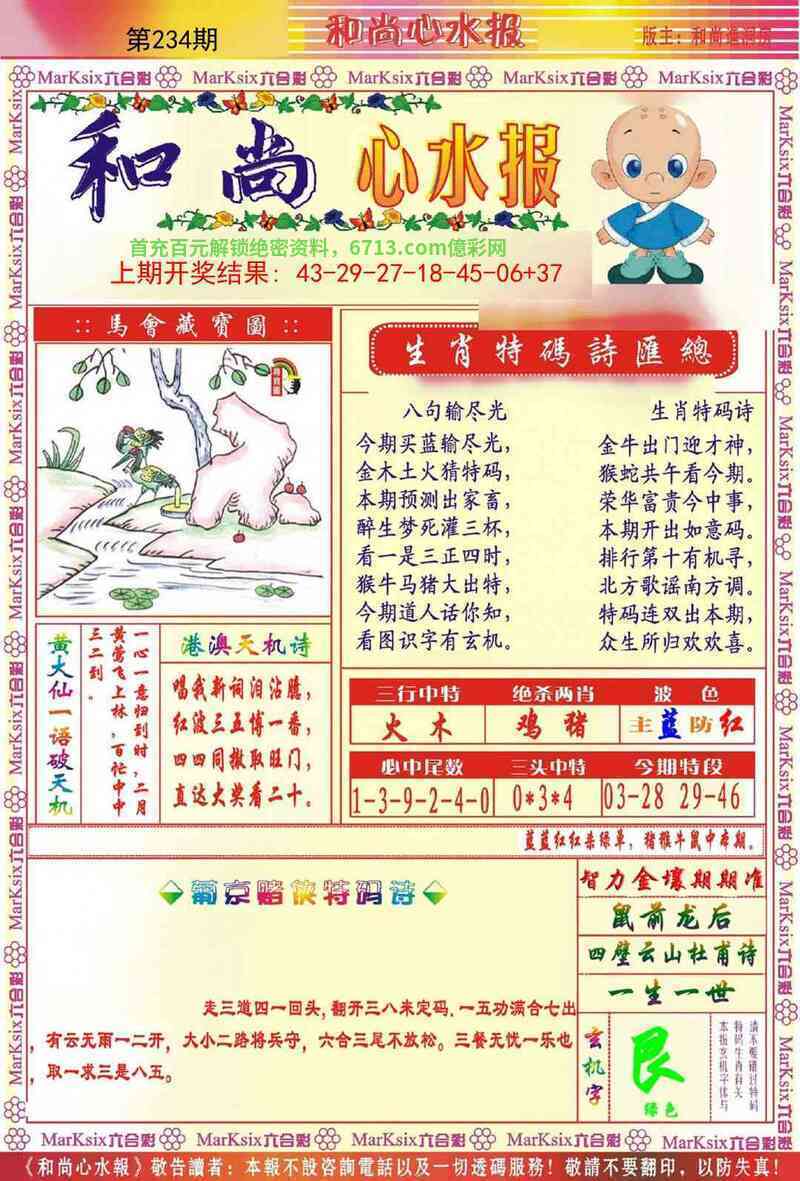 第234期
和尚心水报
版主：和尚進洞房
MarKsix六合彩 MarKsix六合彩 MarKsix六合彩 MarKsix六合彩 MarKsix六合彩
和尚 心水报
首充百元解锁绝密资料，6713.com億彩网
上期开奖结果：43-29-27-18-45-06+37
:: 馬會藏寶圖 ::
生肖特碼詩匯總
八句输尽光
今期买蓝输尽光，
金木土火猜特码，
本期预测出家畜，
醉生梦死灌三杯，
看一是三正四时，
猴牛马猪大出特，
今期道人话你知，
看图识字有玄机。
生肖特码诗
金牛出门迎才神，
猴蛇共午看今期。
荣华富贵今中事，
本期开出如意码。
排行第十有机寻，
北方歌谣南方调。
特码连双出本期，
众生所归欢欢喜。
黄大仙一语破天机
一心一意归到时，二月
黄莺飞上林，百忙中中
三二到。
港澳天机诗
唱我新词泪沾臆，
红波三五博一番，
四四同撒取旺门，
直达大奖看二十。
三行中特 绝杀两肖 波色
火木 鸡猪 主蓝防红
必中尾数 三头中特 今期特段
1-3-9-2-4-0 0*3*4 03-28 29-46
蓝蓝红红杀绿单，猪猴牛鼠中本期。
葡京赌侠特码诗
走三道四一回头,翻开三八来定码.一五功满合七出
，有云无雨一二开，大小二路将兵守，六合三尾不放松。三餐无忧一乐也
，取一求三是八五。
智力金壤期期准
鼠前龙后
四壁云山杜甫诗
一生一世
玄机字
艮
绿色
请不要错过特码
特码生肖有关
本报玄机字体与
MarKsix六合彩 MarKsix六合彩 MarKsix六合彩 MarKsix六合彩 MarKsix六合彩
《和尚心水報》敬告讀者：本報不設咨詢電話以及一切透碼服務！敬請不要翻印，以防失真！